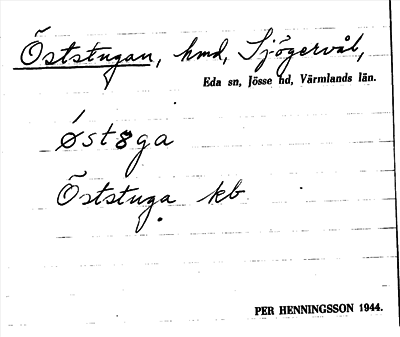 Öststugan, hmd, Sjögervål,
Eda sn, Jösse hd, Värmlands län.
ǿst8ga
Öststuga kb
PER HENNINGSSON 1944.